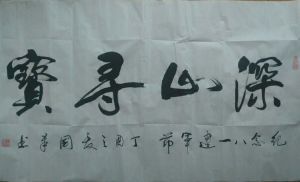 深山寻寳
纪念八一建军节 丁酉之夏 国华书